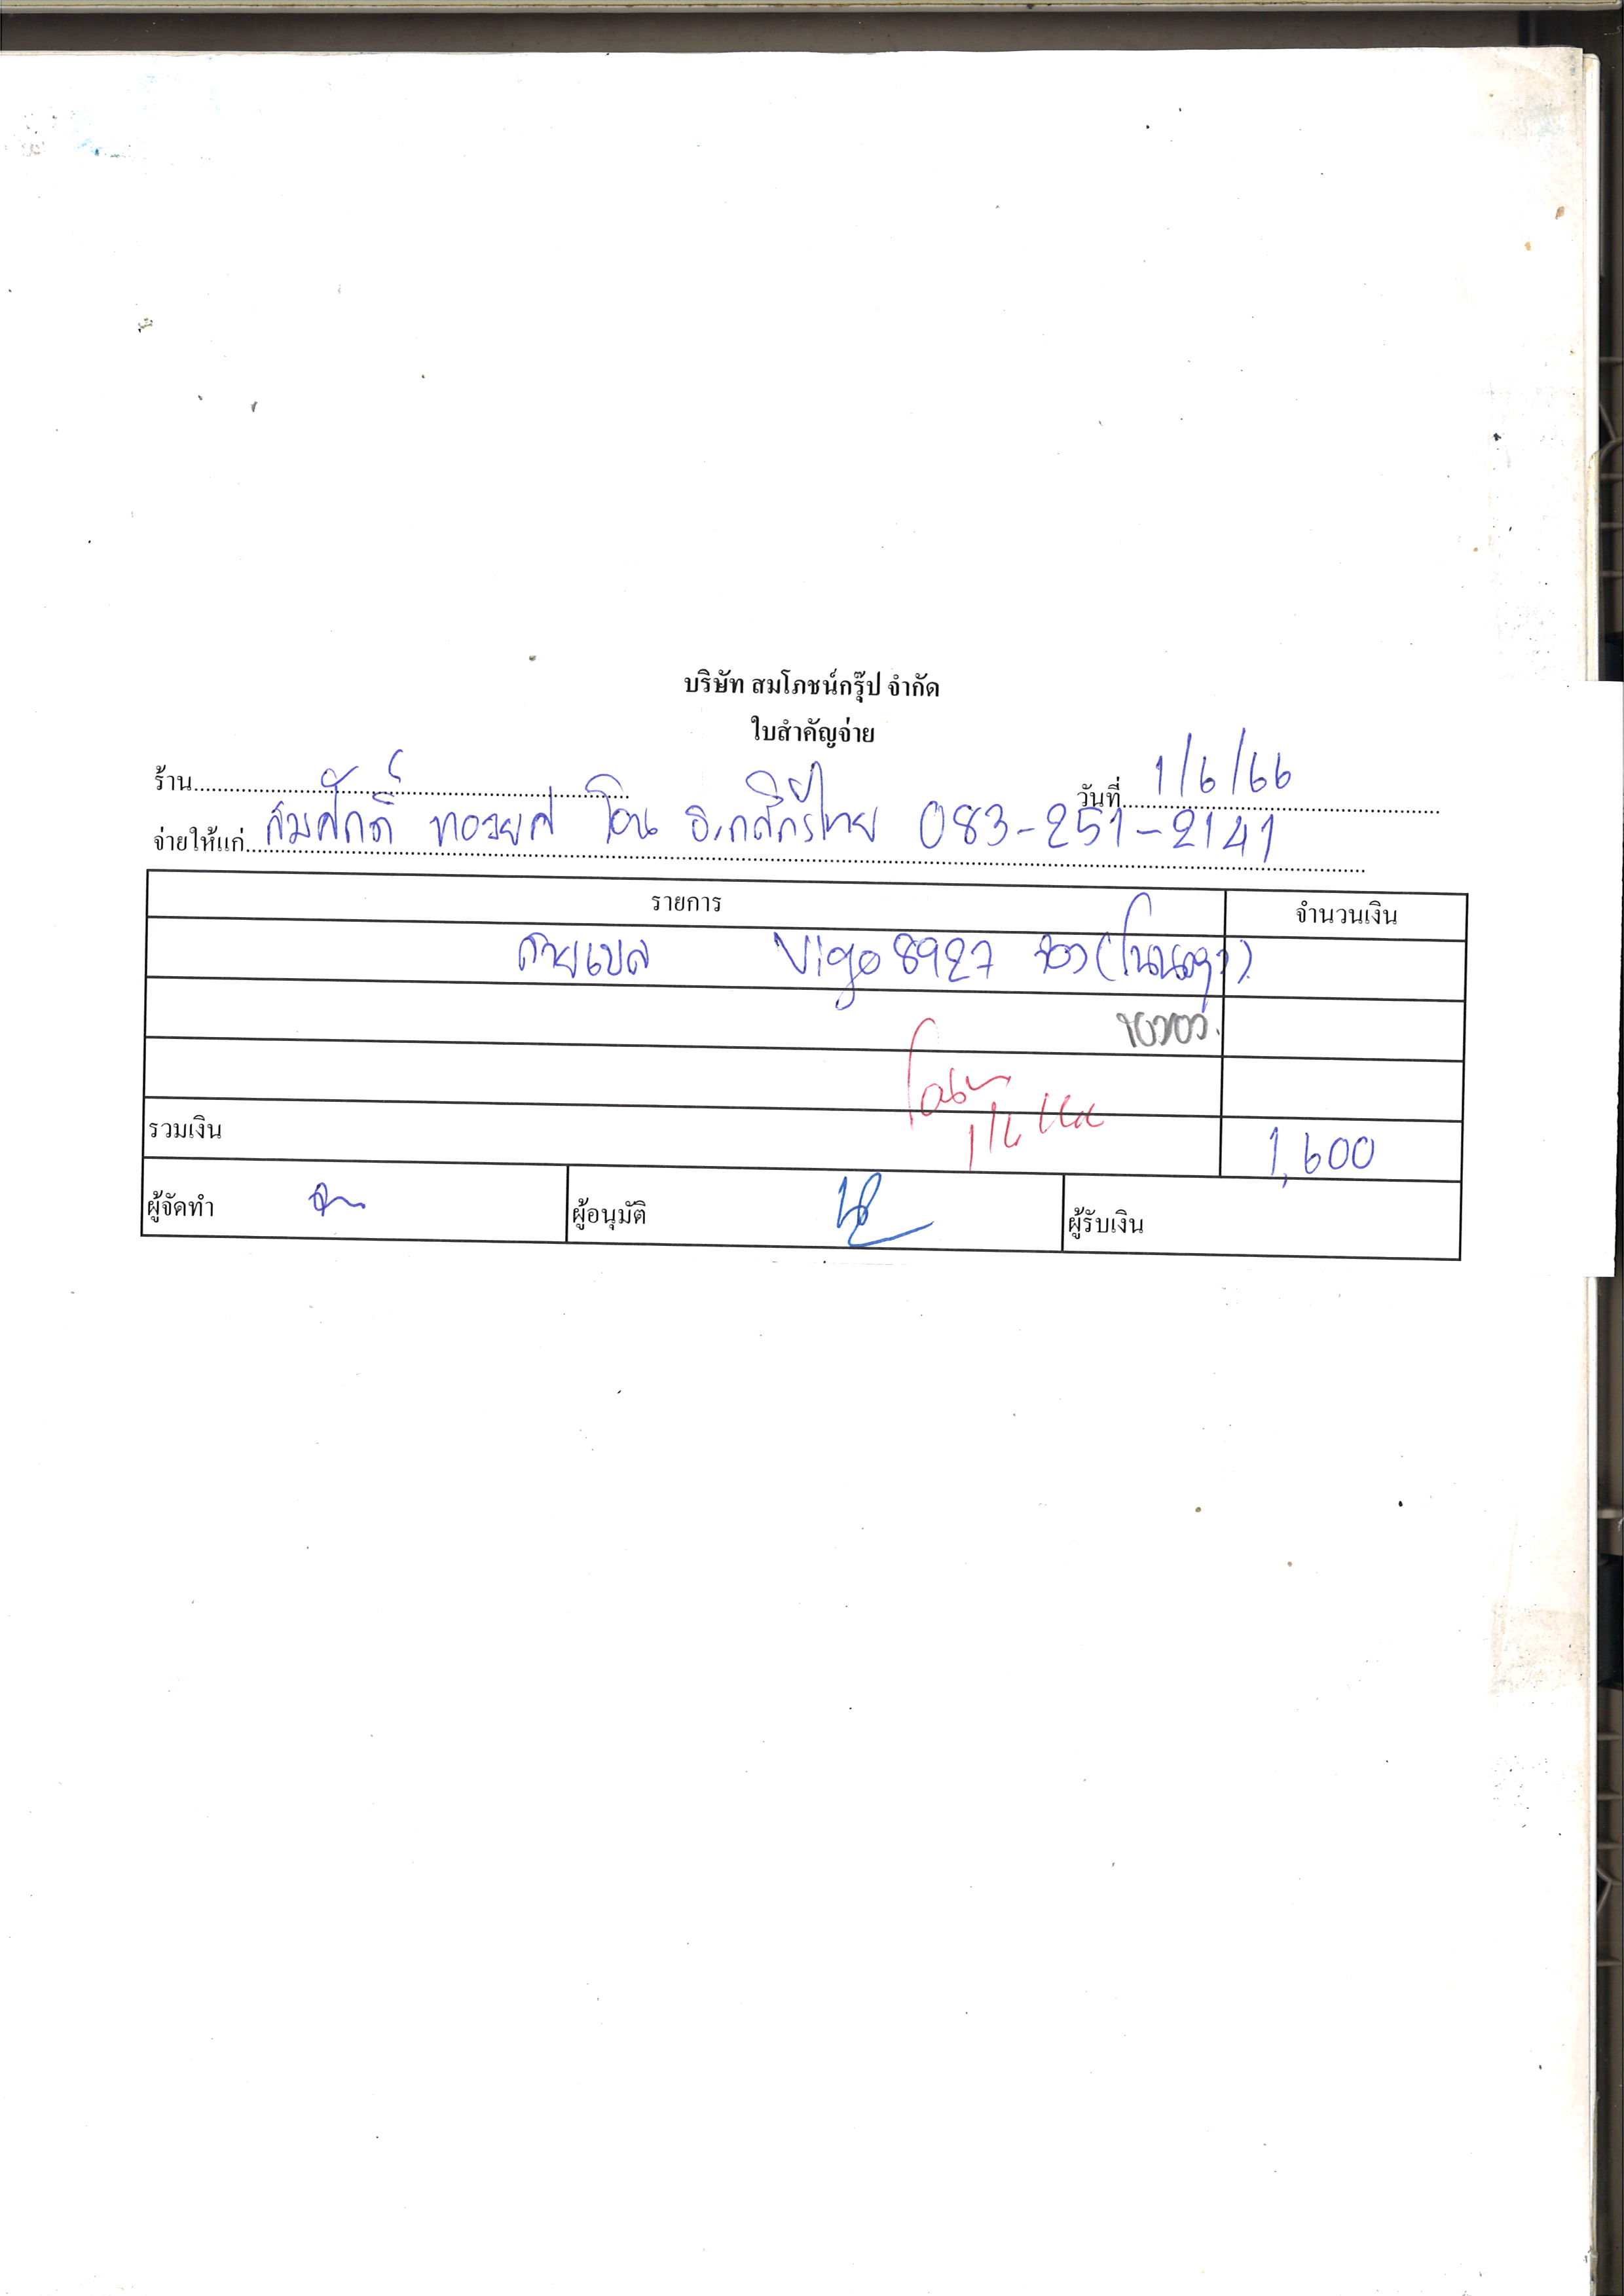 บริษัท สมโภชน์กรุ๊ป จำกัด
ใบสำคัญจ่าย
ร้าน
วันที่ 1/6/66
จ่ายให้แก่ สมศักดิ์ ทองยศ โอน ธ.กสิกรไทย 083-251-2141
รายการ จำนวนเงิน
สายเบส Vigo 8927
โอนแล้ว
รวมเงิน 1,600
ผู้จัดทำ ผู้อนุมัติ ผู้รับเงิน